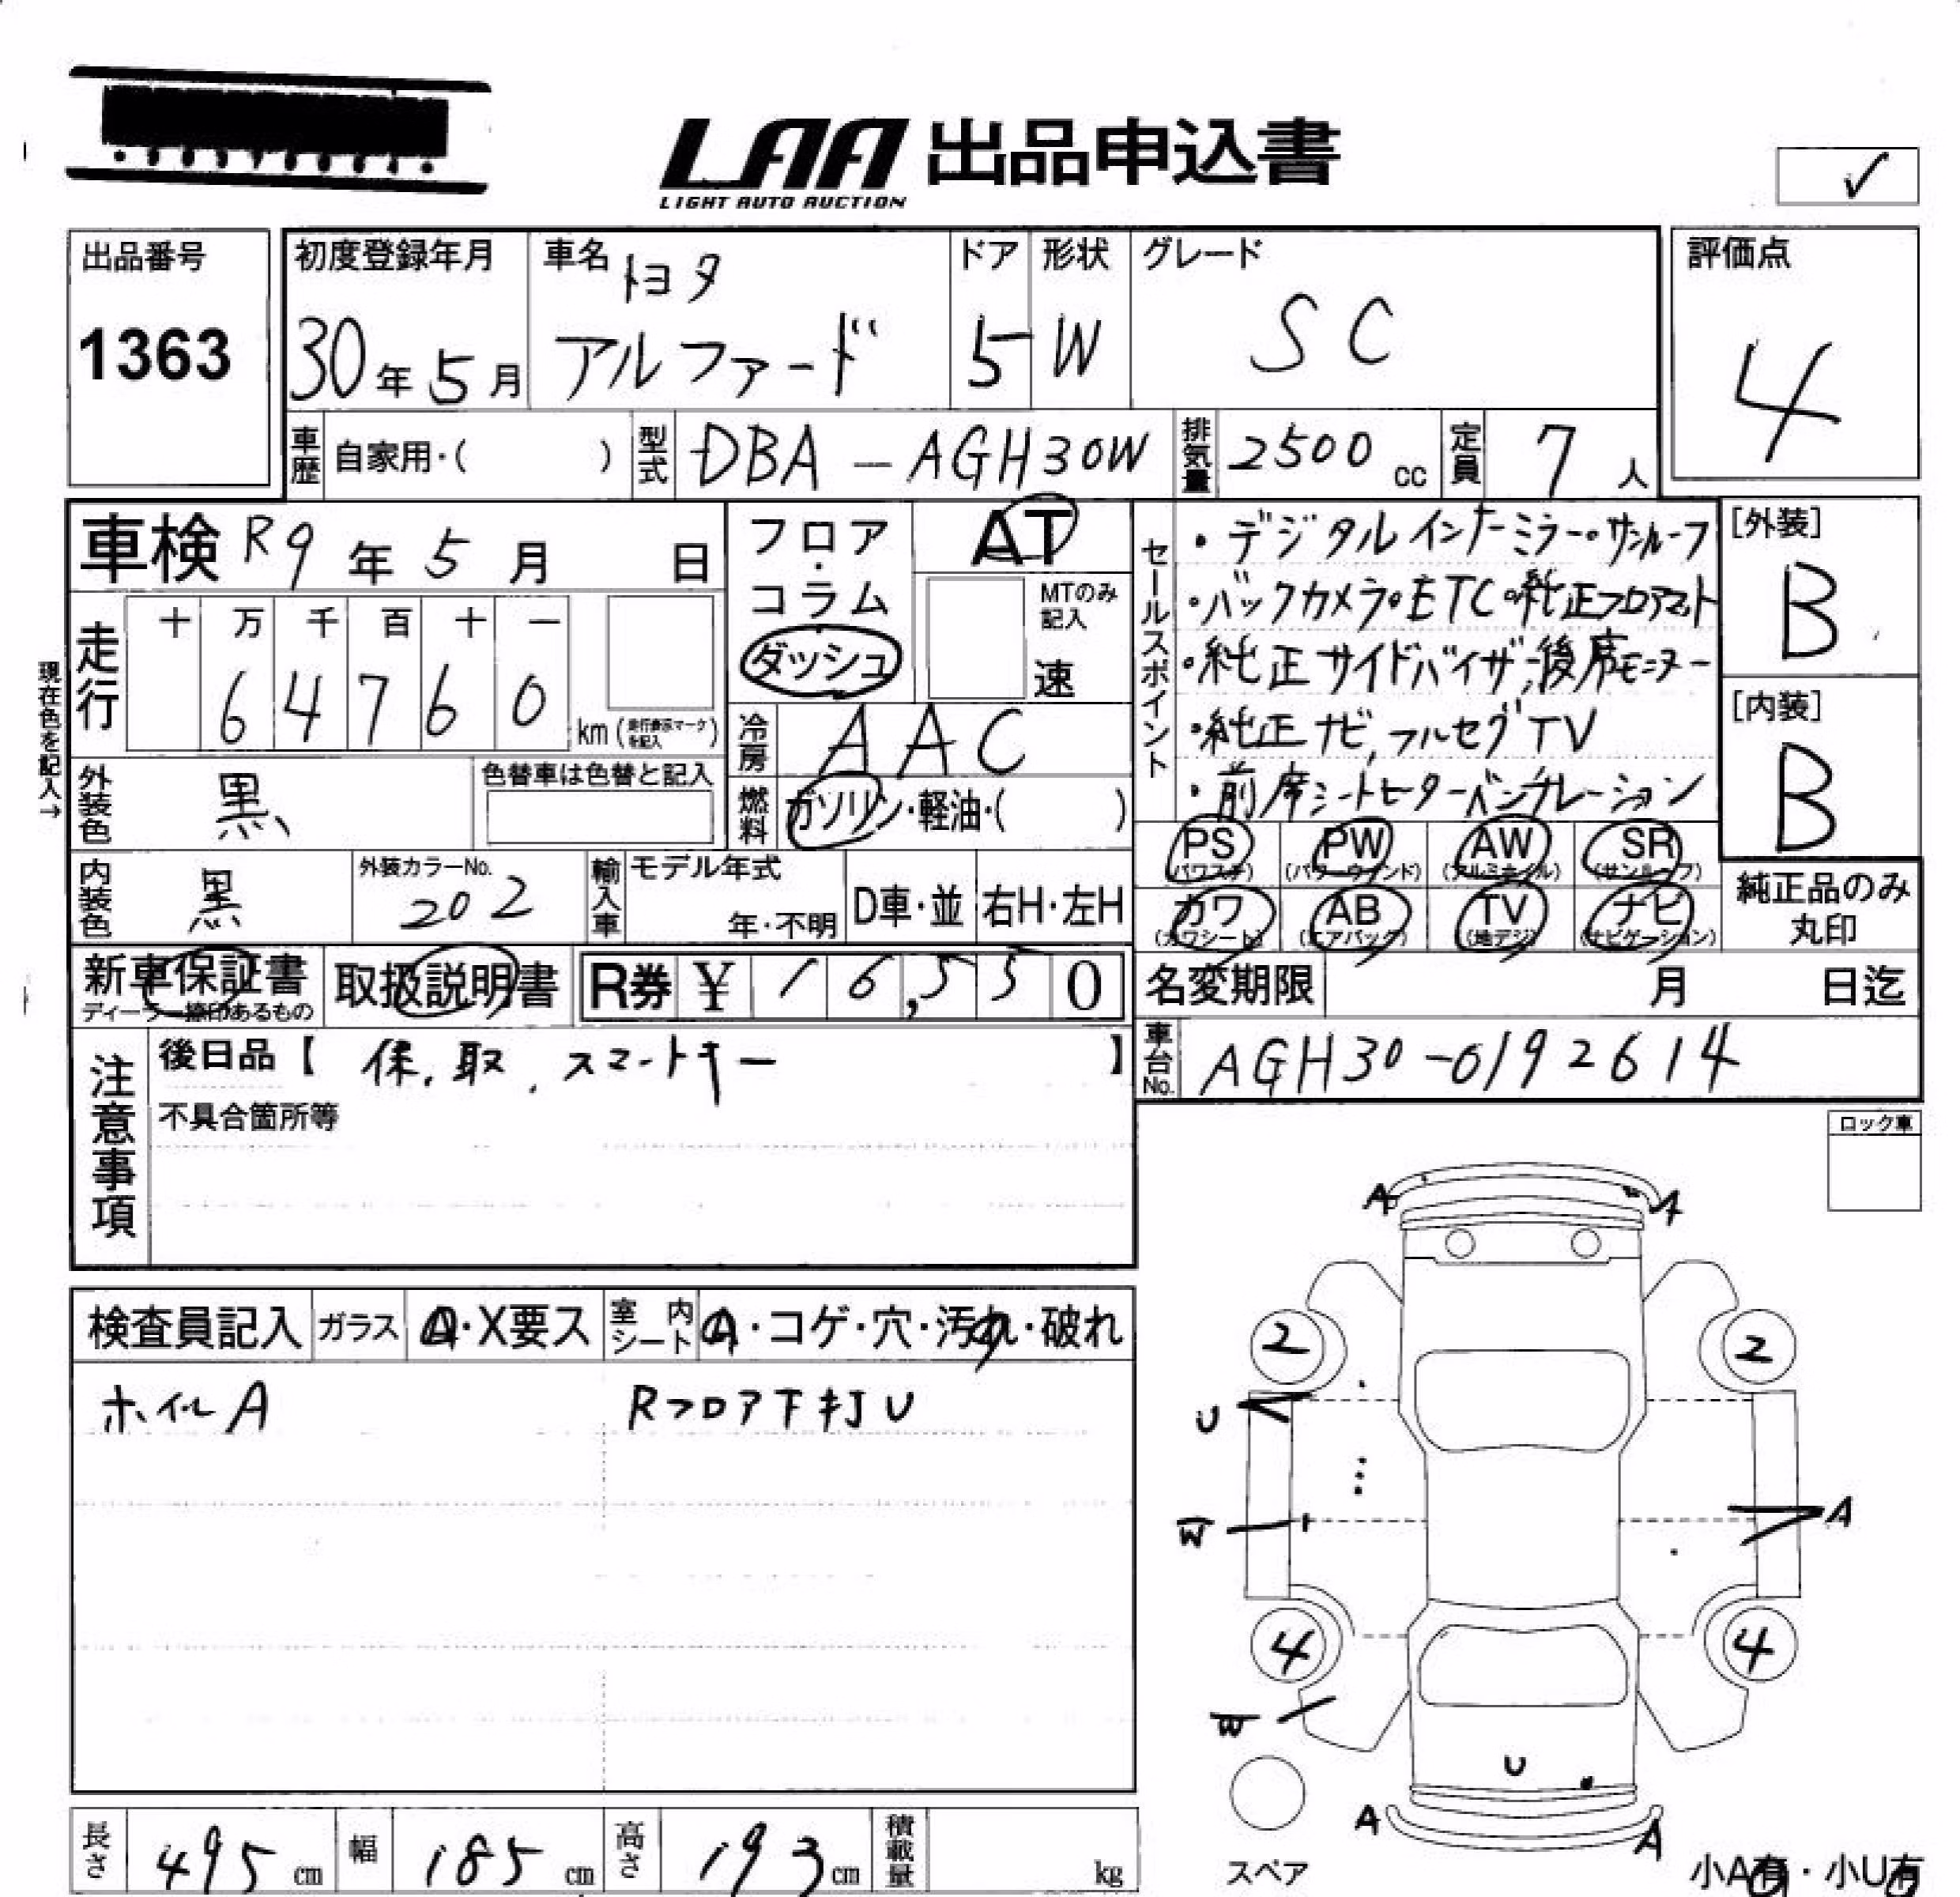 LAA 出品申込書
LIGHT AUTO AUCTION
✓
出品番号
1363
初度登録年月
30年5月
車名
トヨタ
アルファード
ドア
5
形状
W
グレード
SC
評価点
4
車歴 自家用・( )
型式 DBA-AGH30W
排気量 2500cc
定員 7人
車検 R9年5月 日
フロア・コラム
ダッシュ
AT
MTのみ記入
速
セールスポイント
・デジタルインナーミラー・サンルーフ
・バックカメラ・ETC・純正フロアマット
・純正サイドバイザー,後席モニター
・純正ナビ,フルセグTV
・前席シートヒーターベンチレーション
[外装]
B
[内装]
B
現在色を記入→
走行
十 万 千 百 十 一
6 4 7 6 0
km (走行表示マークを記入)
冷房 AAC
燃料 ガソリン・軽油・( )
外装色 黒
色替車は色替と記入
内装色 黒
外装カラーNo.
202
輸入車
モデル年式
年・不明
D車・並
右H・左H
PS (パワステ)
PW (パワーウインド)
AW (アルミホイル)
SR (サンルーフ)
カワ (カワシート)
AB (エアバック)
TV (地デジ)
ナビ (ナビゲーション)
純正品のみ丸印
新車保証書
ディーラー捺印あるもの
取扱説明書
R券 ¥16,550
名変期限 月 日迄
車台No. AGH30-0192614
注意事項
後日品【 保, 取, スマートキー 】
不具合箇所等
ロック車
検査員記入
ガラス A・X要ス
室内シート A・コゲ・穴・汚れ・破れ
ホイルA
Rフロア下打U
A A
2 2
U
W A
4 4
W
U
A A
スペア
小A有・小U有
長さ 495cm
幅 185cm
高さ 193cm
積載量 kg